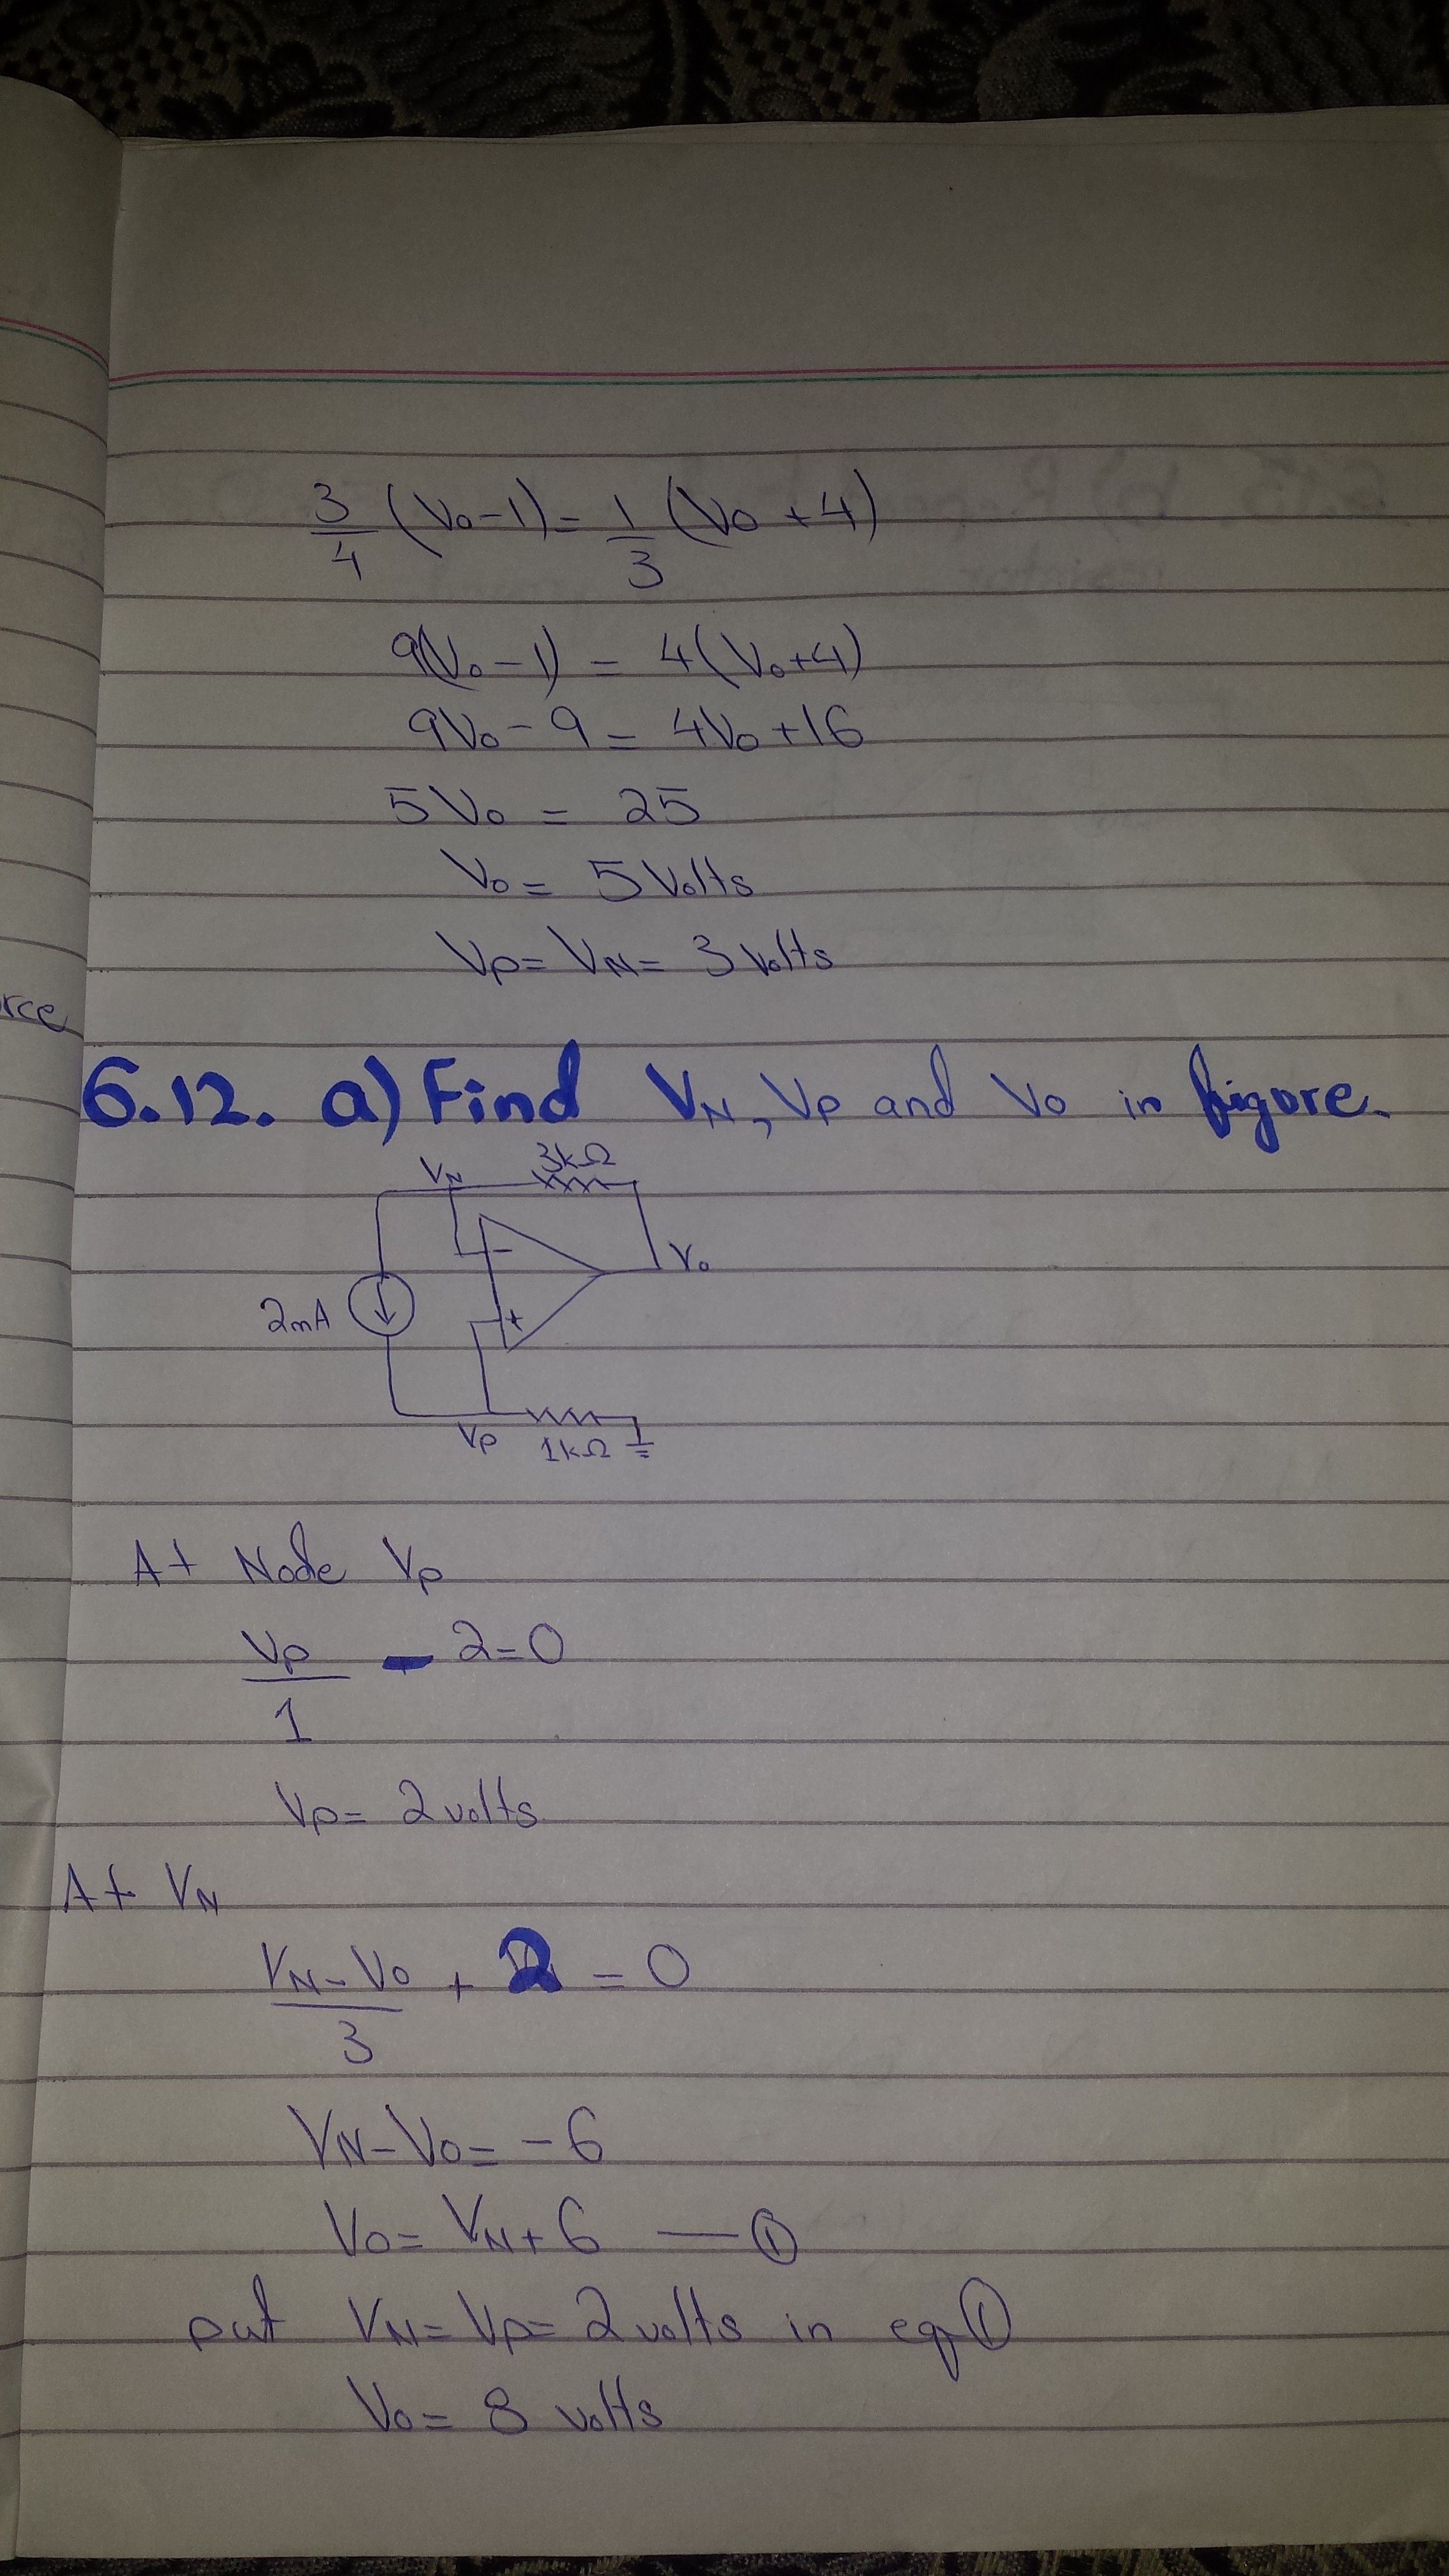 3/4 (Vo-1) = 1/3 (Vo+4)
9(Vo-1) = 4(Vo+4)
9Vo-9 = 4Vo+16
5Vo = 25
Vo = 5 Volts
Vp = VN = 3 volts
rce
6.12. a) Find VN, Vp and Vo in figure.
VN 3kΩ
- Vo
2mA +
Vp 1kΩ
At Node Vp
Vp/1 - 2 = 0
Vp = 2 volts
At VN
VN-Vo/3 + 2 = 0
VN-Vo = -6
Vo = VN+6 — ①
put VN = Vp = 2 volts in eq ①
Vo = 8 volts